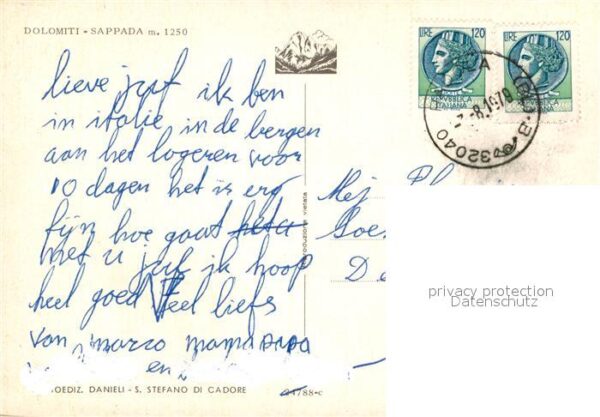 DOLOMITI - SAPPADA m. 1250
LIRE 120
LIRE 120
REPUBBLICA ITALIANA
-8.1978
32040
lieve juf ik ben
in italie in de bergen
aan het logeren voor
10 dagen het is erg
fijn hoe gaat het
met u juf ik hoop
heel goed Veel liefs
van marco mama papa
en
Mej
De
privacy protection
Datenschutz
EDIZ. DANIELI - S. STEFANO DI CADORE
4788-c